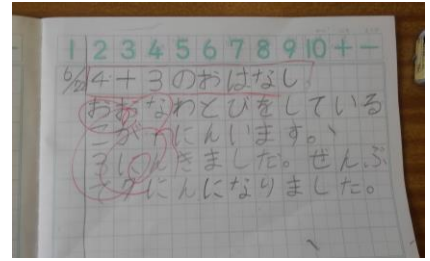 1 2 3 4 5 6 7 8 9 10 + −
6/22 4+3のおはなし
おおなわとびをしている
こが4にんいます。
3にんきました。ぜんぶ
で7にんになりました。